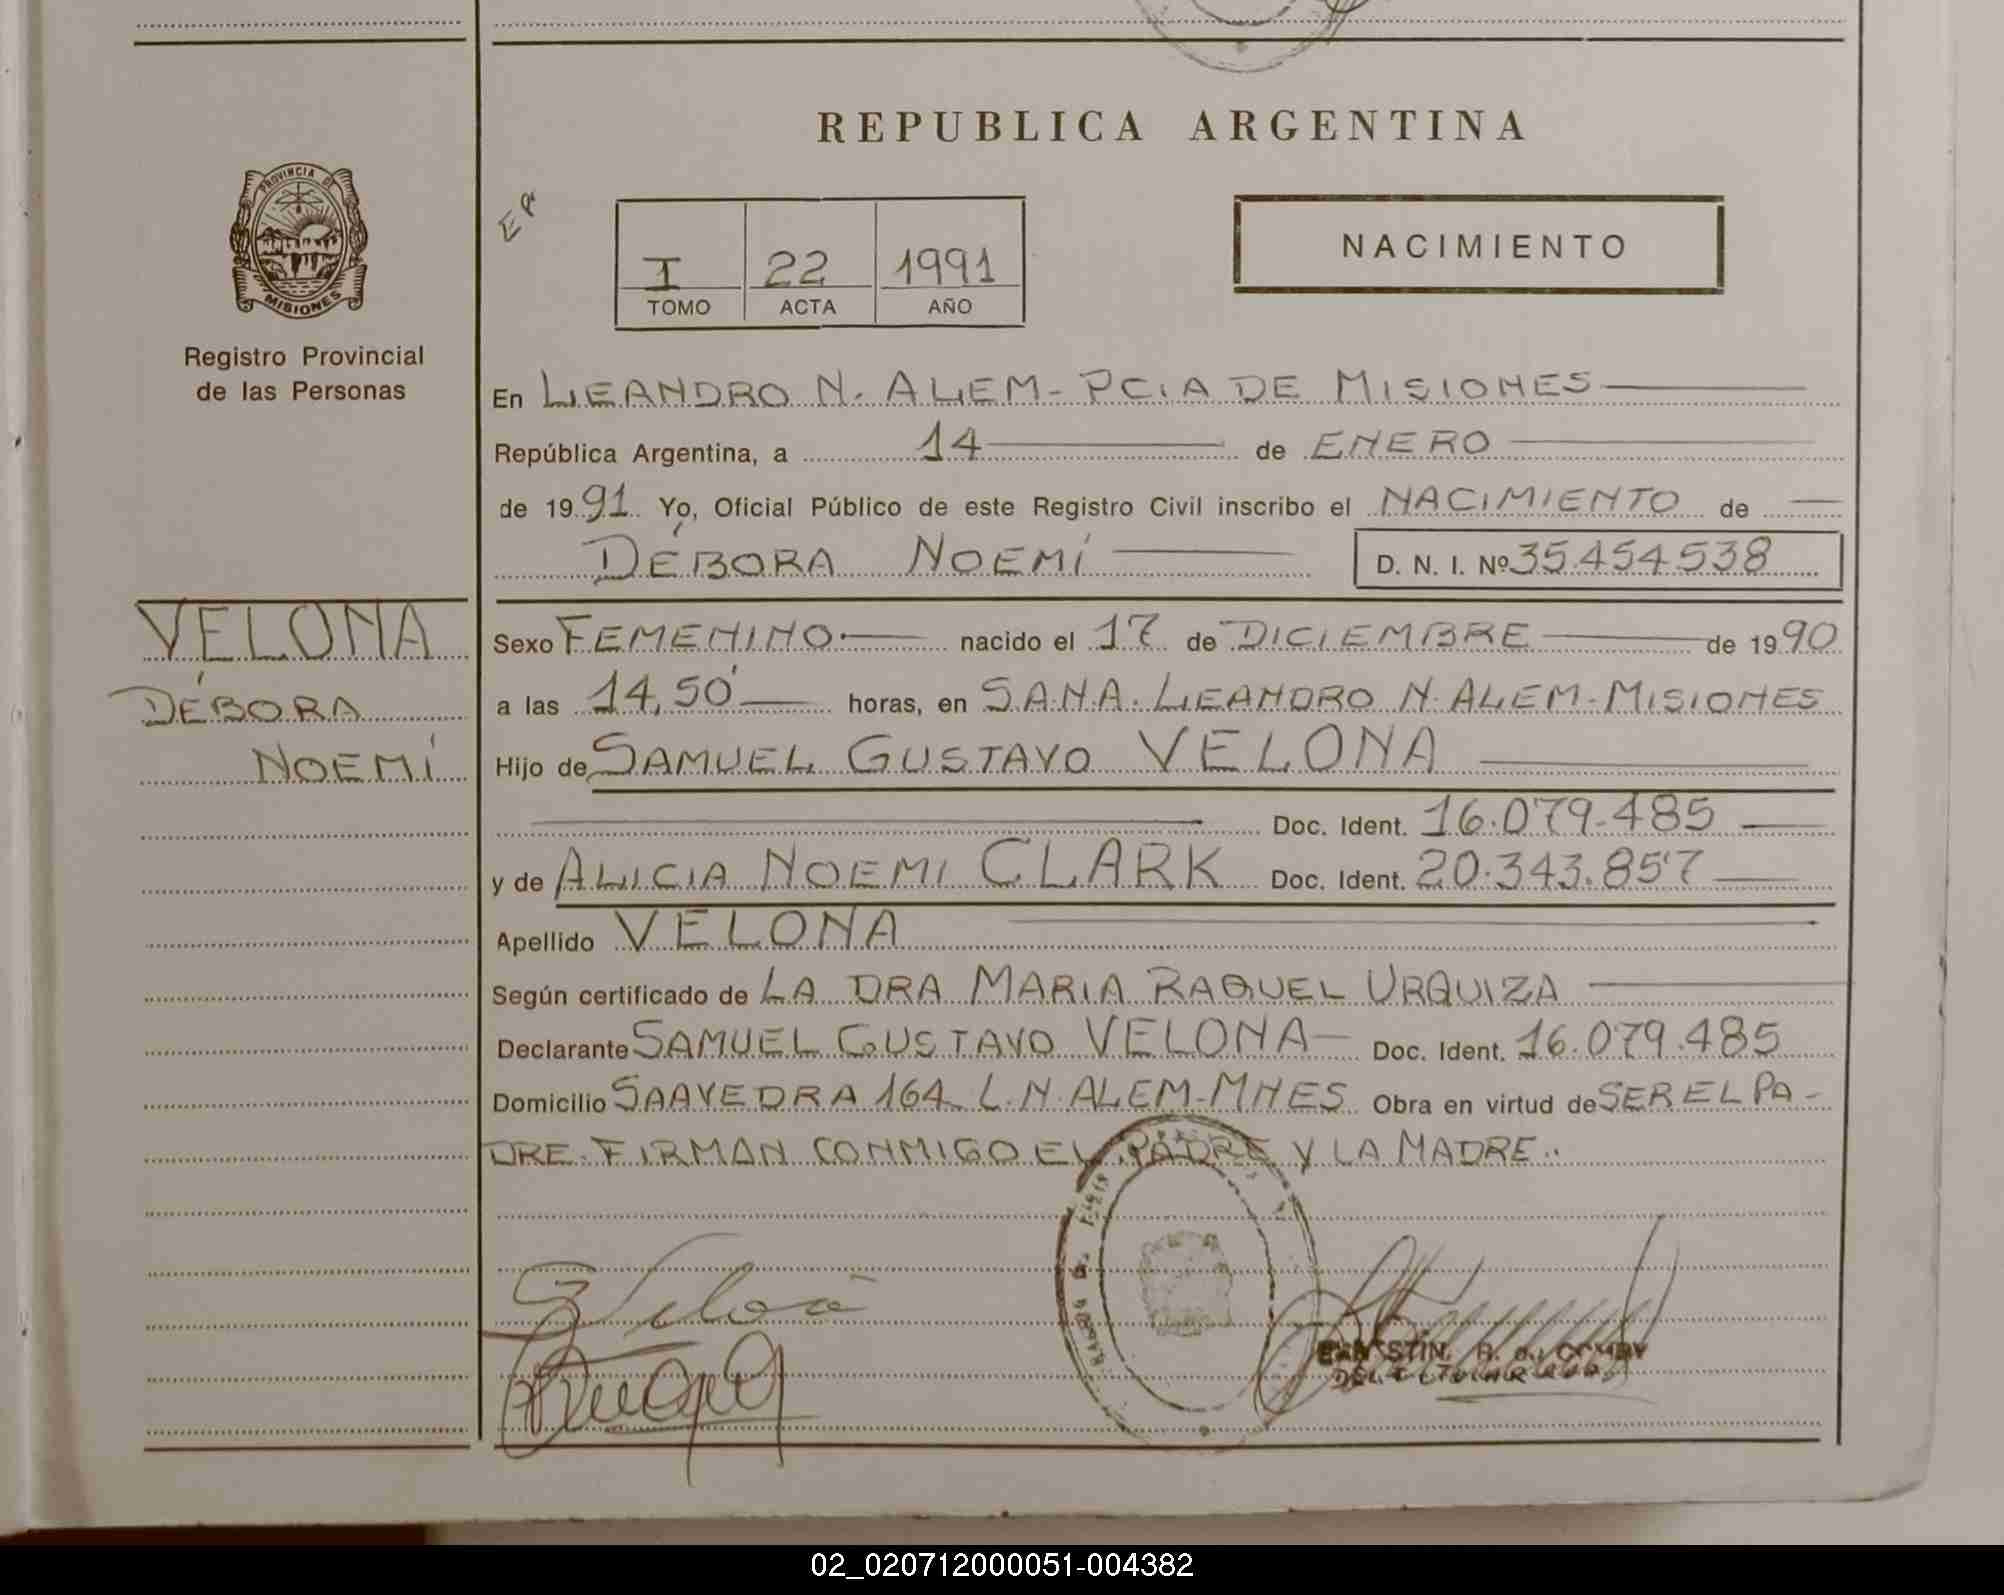 REPUBLICA ARGENTINA
PROVINCIA DE
MISIONES
Registro Provincial
de las Personas
I 22 1991
TOMO ACTA AÑO
NACIMIENTO
En LEANDRO N. ALEM - PCIA DE MISIONES
República Argentina, a 14 de ENERO
de 1991 Yo, Oficial Público de este Registro Civil inscribo el NACIMIENTO de
DÉBORA NOEMÍ D. N. I. Nº 35.454.538
VELONA
DÉBORA
NOEMÍ
Sexo FEMENINO.- nacido el 17 de DICIEMBRE de 1990
a las 14,50' horas, en S.A.N.A. LEANDRO N. ALEM - MISIONES
Hijo de SAMUEL GUSTAVO VELONA
Doc. Ident. 16.079.485
y de ALICIA NOEMI CLARK Doc. Ident. 20.343.857
Apellido VELONA
Según certificado de LA DRA MARIA RAQUEL URQUIZA
Declarante SAMUEL GUSTAVO VELONA Doc. Ident. 16.079.485
Domicilio SAAVEDRA 164 L.N. ALEM - MNES Obra en virtud de SER EL PA-
DRE. FIRMAN CONMIGO EL PADRE Y LA MADRE..
02_020712000051-004382